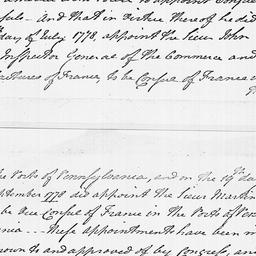 sule. And that in Virtue thereof he did
day of July 1778, appoint the Sieur John
Inspector General of the Commerce and
factures of France, to be Consul of France i
the Ports of Pennsylvania, and on the 19th da
September 1778 did appoint the Sieur Martin
be Vice Consul of France in the Ports of Pen
nia... These appointments have been
nown to and approved of by Congress, an